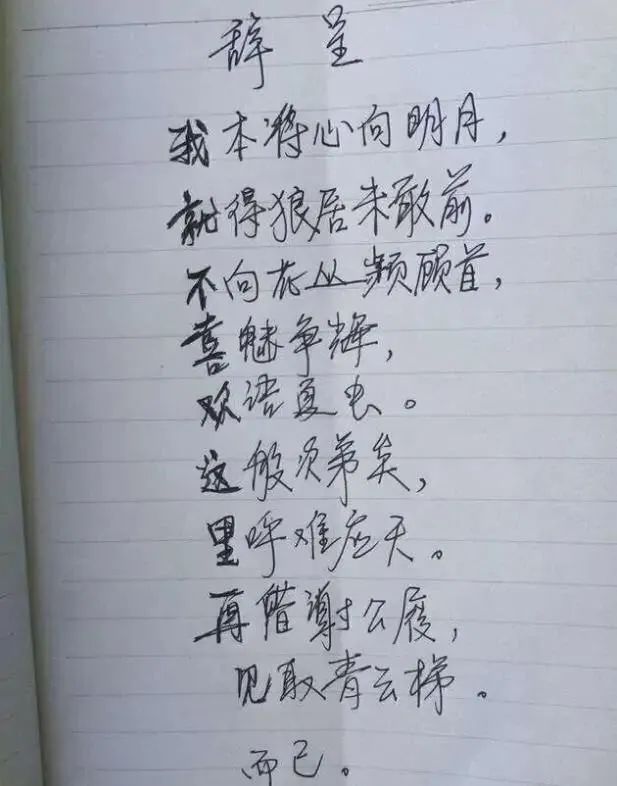 辞呈
我本将心向明月，
就得狼居未敢前。
不向花丛频顾首，
喜魅争辉，
欢语夏虫。
这般次第矣，
里呼难应天。
再借谢公屐，
见取青云梯。
而已。